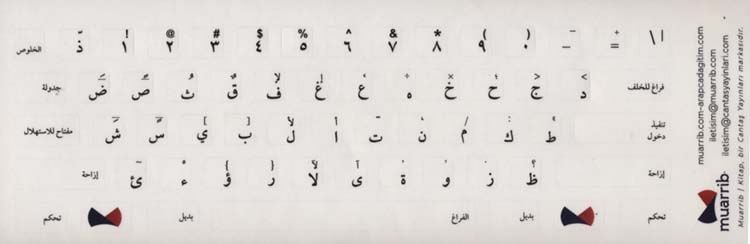 الخلوص ذّ ! ١ @ ٢ # ٣ $ ٤ % ٥ ^ ٦ & ٧ * ٨ ( ٩ ) ٠ _ - + = | \
جدولة ضَ صً ثُ قٌ ف لإ غ إ ع ‘ ه ÷ خ × ح ؛ ج < د > فراغ للخلف
مفتاح للاستهلال شَ سً ي ] ب [ ل لأ ا أ ت ـ ن ، م / ك : ط " تنفيذ
دخول
إزاحة ئ ~ ء ْ ؤ } ر { لا لآ ى آ ة ’ و , ز . ظ ؟ إزاحة
تحكم بديل الفراغ بديل تحكم
muarrib.com-arapcadagitim.com
iletisim@muarrib.com
iletisim@cantasyayinlari.com
muarrib
Muarrib | Kitap, bir Cantaş Yayınları markasıdır.